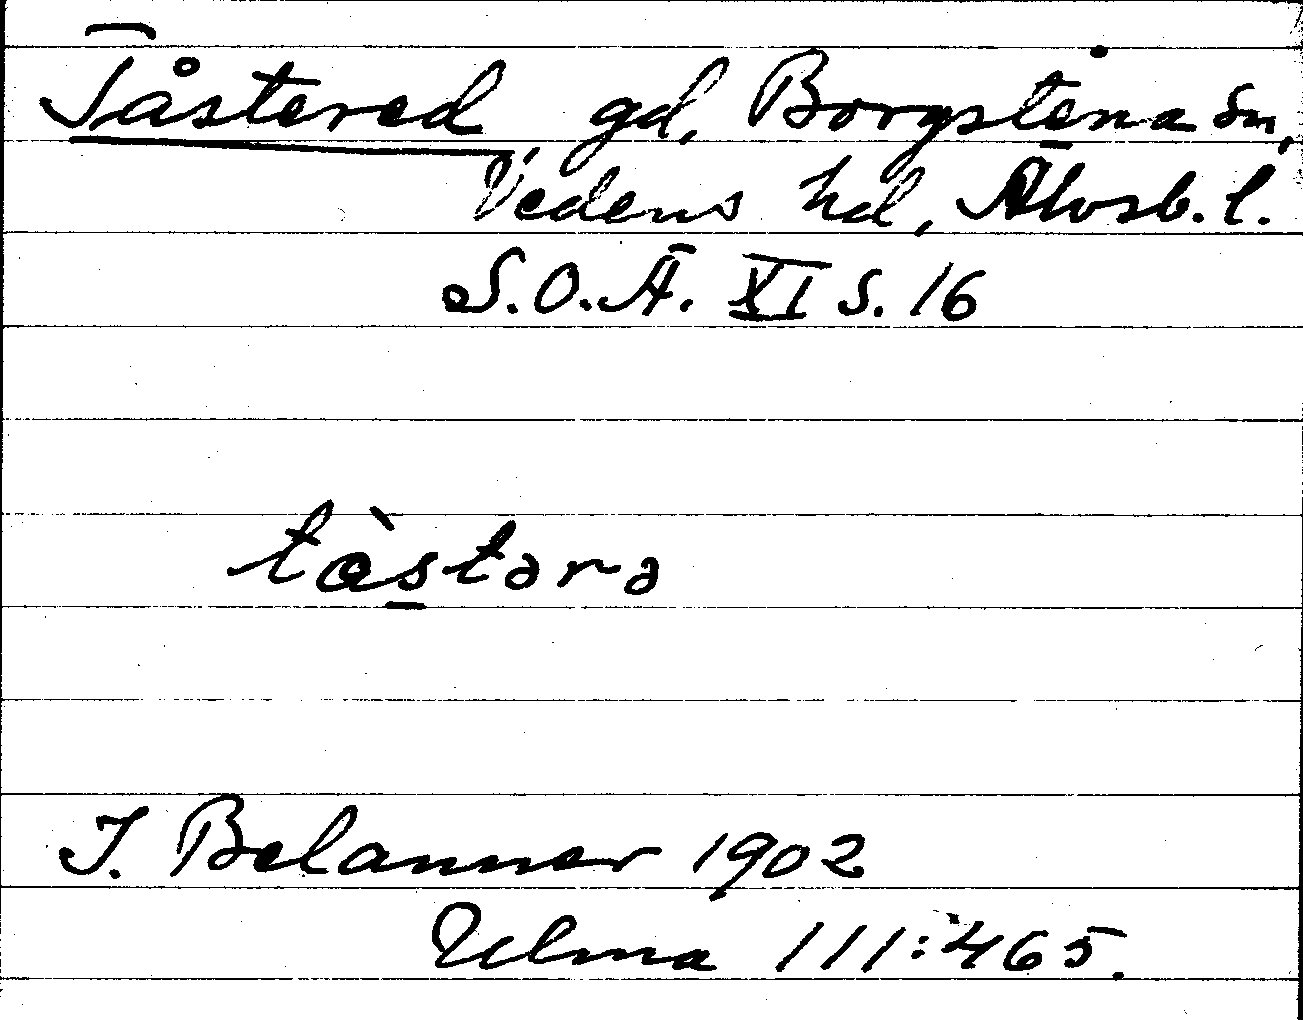 Tåstered gd, Borgstena sn,
Vedens hd, Älvsb. l.
S.O.Ä. XI s. 16
tàs̱tərə
J. Belanner 1902
Ulma 111:465.